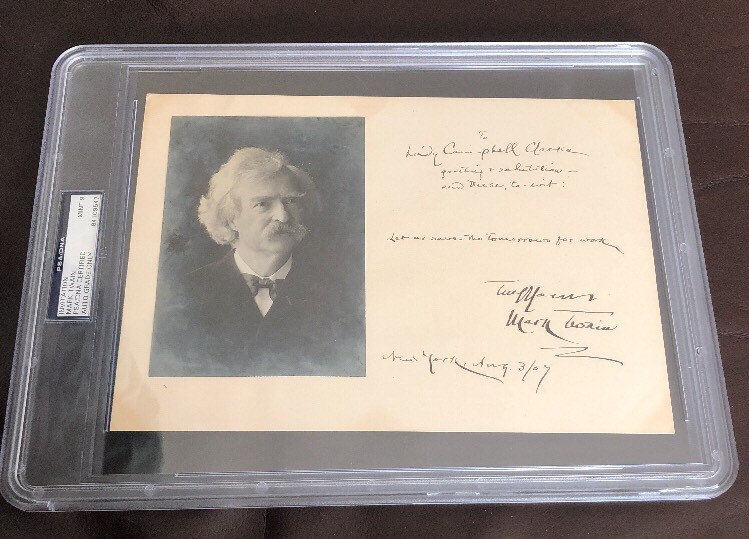 PSA/DNA
INVITATION
MARK TWAIN
PSA/DNA CERTIFIED
AUTO GRADE ONLY
MINT 9
To
Lady Campbell Clarke
greeting & salutation —
and Desier, to-wit:
Let us save the tomorrows for work
Truly Yours
Mark Twain
New York, Aug. 3/07